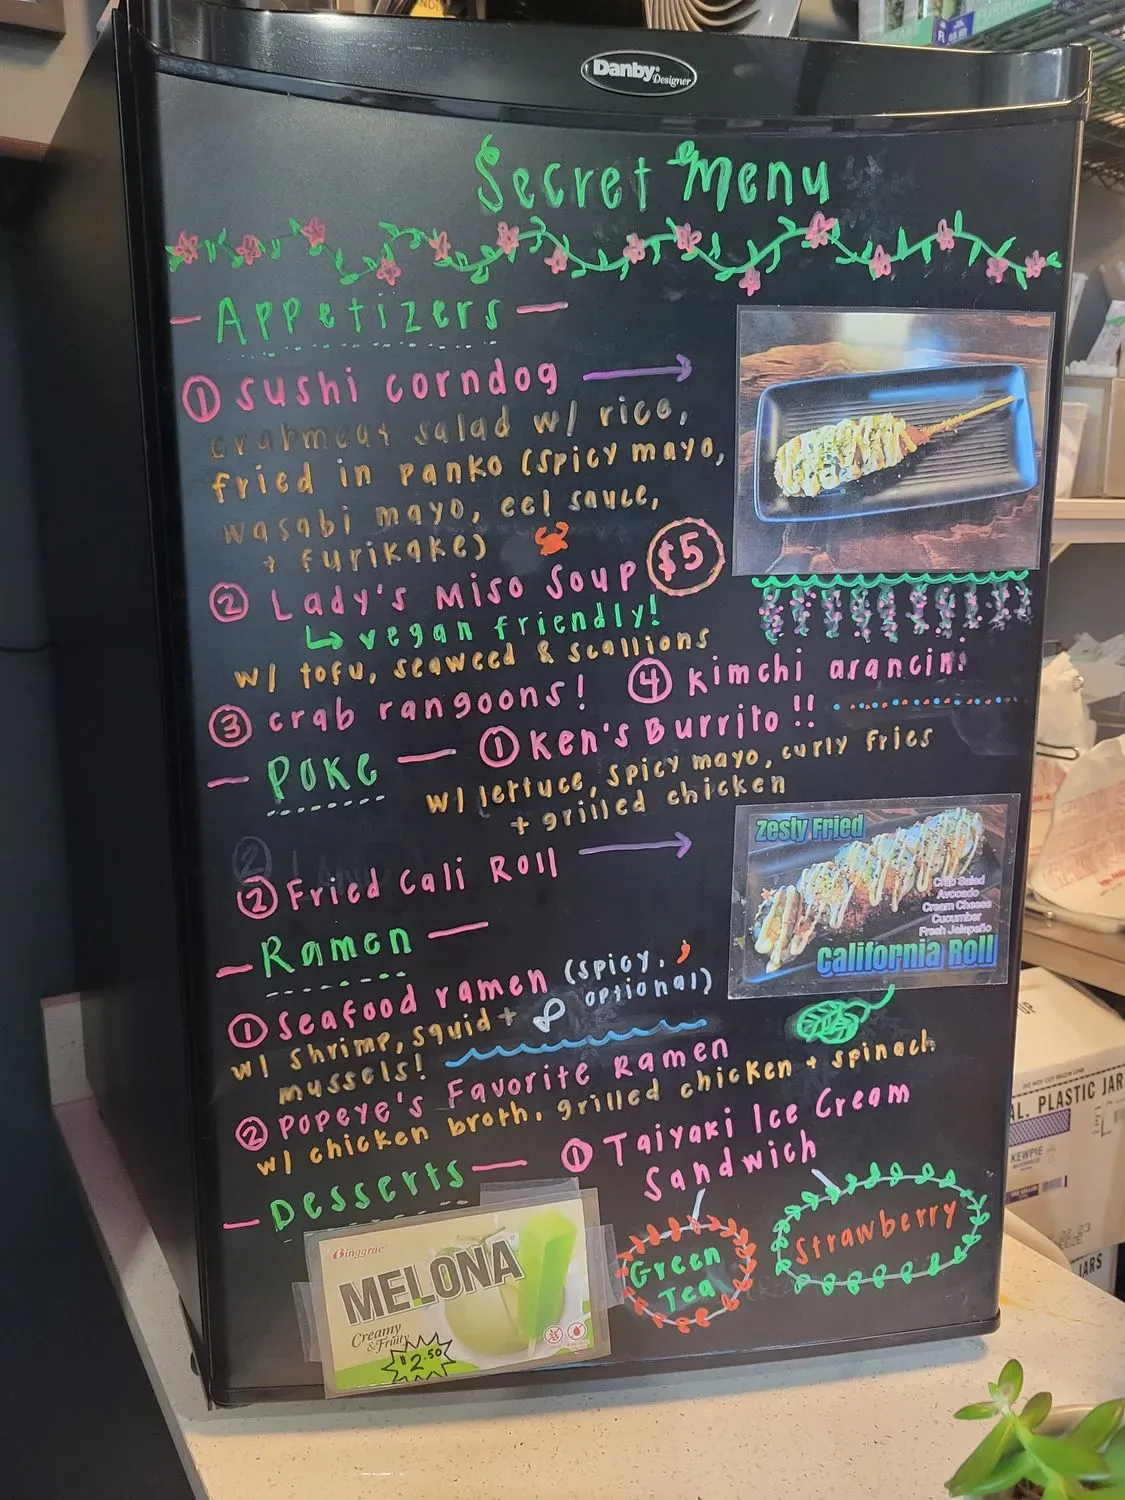 Danby
Designer
Secret Menu
Appetizers
① sushi corndog
crabmeat salad w/ rice,
fried in panko (spicy mayo,
wasabi mayo, eel sauce,
+ furikake)
② Lady's Miso Soup $5
vegan friendly!
w/ tofu, seaweed & scallions
③ crab rangoons!
④ kimchi arancini
Poke
① Ken's Burrito!!
w/ lettuce, spicy mayo, curly fries
+ grilled chicken
② Fried Cali Roll
Zesty Fried
Crab Salad
Avocado
Cream Cheese
Cucumber
Fresh Jalapeño
California Roll
Ramen
① Seafood ramen (spicy,
optional)
w/ shrimp, squid +
mussels!
② Popeye's Favorite Ramen
w/ chicken broth, grilled chicken + spinach
Desserts
① Taiyaki Ice Cream
Sandwich
Green
Tea
Strawberry
Binggrae
MELONA
Creamy
& Fruity
$2.50
FURIKAKE
AL. PLASTIC JAR
KEWPIE
JARS